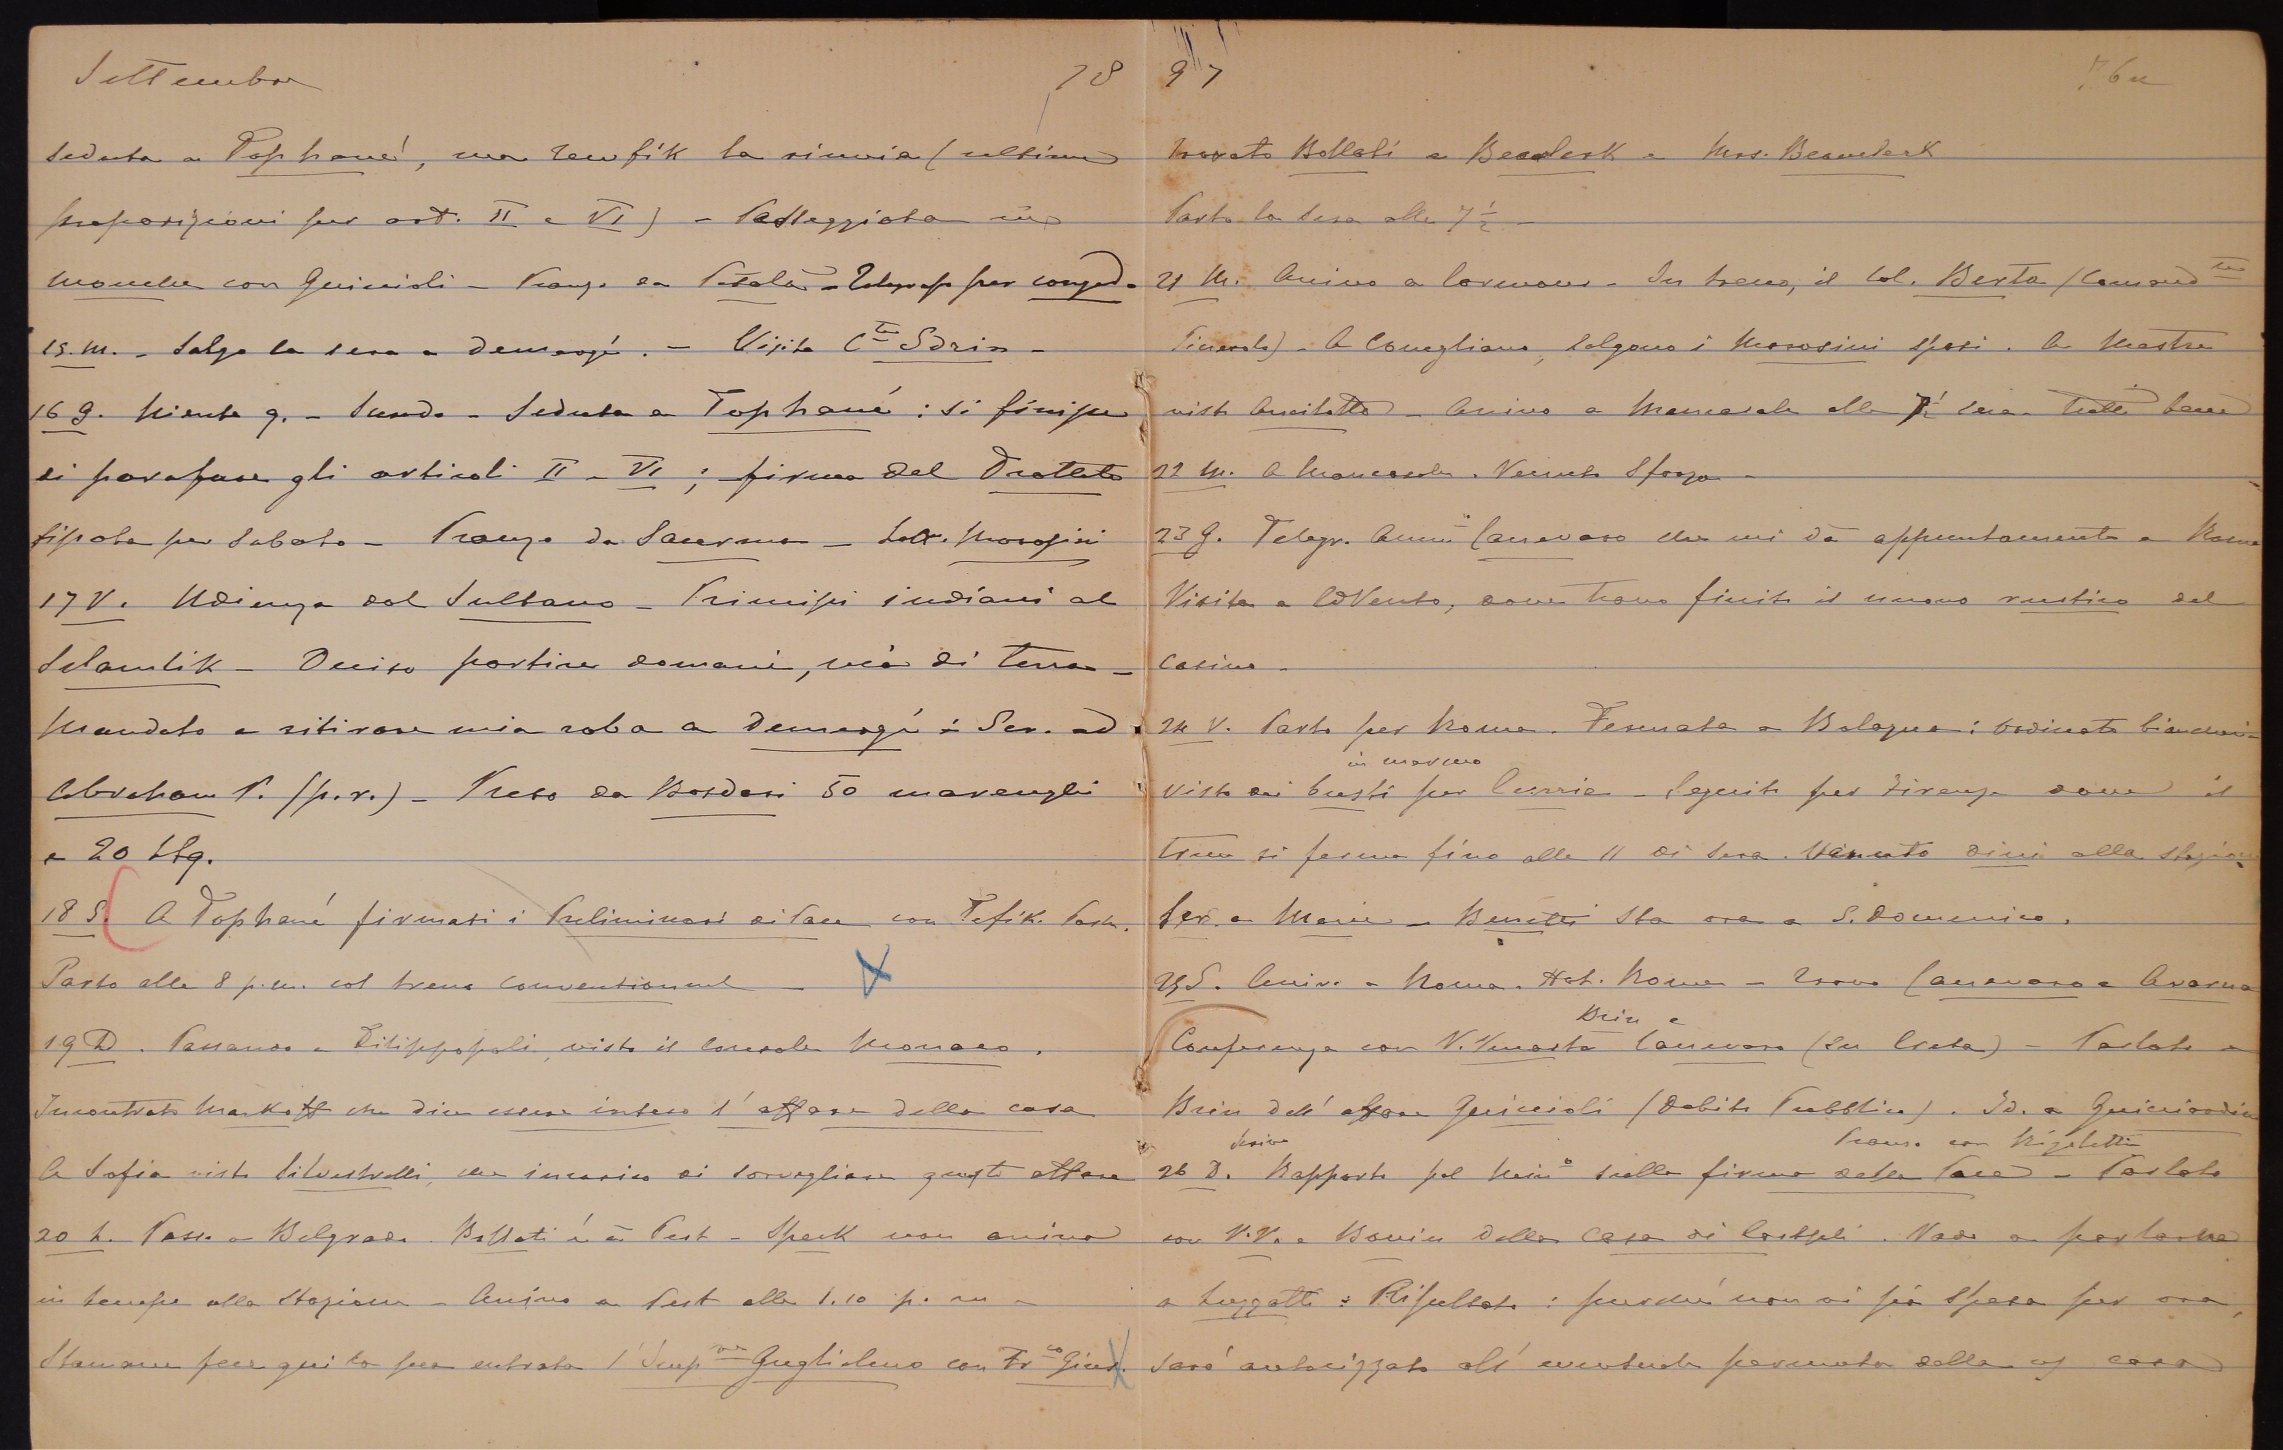 Settembre 18
seduta a Tophané, ma Tewfik la rinvia (ultime
proposizioni per art. II e VI) – Passeggiata in
mouche con Guiccioli – Pranzo da – Telegraf per congedo
15. M. – Salgo la sera a Demargé. – Visita C.te Sdrin –
16 G. Niente g. – Scendo – Seduta a Tophané : si finisce
di parafare gli articoli II – VI ; firma del Trattato
fissata per Sabato – Pranzo da – Morosini
17 V. Udienza dal Sultano – Principi indiani al
Selamlik – Deciso partire domani, via di terra –
Mandato a ritirare mia roba a Demargé : Scr. ad
Abraham P. (p.r.) – Preso da Bosdari 50 marenghi
e 20 Ltq.
18 S. A Tophané firmati i Preliminari di Pace con Tefik. Pach.
Parto alle 8 p.m. col treno conventionnel –
19 D. Passando a Filippopoli, visto il Console Monaco.
Incontrato Markoff che dice essere inteso l'affare della casa
A Sofia visto Silvestrelli, che incarico di sorvegliare questo affare
20 L. Passo a Belgrado. Bollati è a Pest – Speck non arriva
in tempo alla stazione – Arrivo a Pest alle 1.10 p. m –
Stamane fece qui la sua entrata l'Imp.re Guglielmo con Fr.co Gius.
97 76
trovato Bollati e e Mrs.
Parto la sera alle 7 ½ –
21 M. Arrivo a Cormons – In treno, il Col. Berta (Comand.te
Pinerolo) – A Conegliano, salgono i Morosini sposi. A Mestre
visto – Arrivo a Mancasale alle 7 ½ sera. Tutti bene
22 M. A Mancasale. Venuto Sforza –
23 G. Telegr. Canevaro che mi dà appuntamento a Roma
Visita a, dove trovo finito il nuovo rustico del
casino –
24 V. Parto per Roma. Fermata a Bologna : ordinato biancheria
in marmo
visto dei busti per Currie – Seguito per Firenze dove il
treno si ferma fino alle 11 di sera. Venuto Dini alla stazione
Scr. a Marie – sta ora a S. Domenico.
25 S. Arriv. a Roma. Hot. Rome – Trovo Canevaro e Avarna
Brin e
Conferenza con V. Venosta Canevaro (su Creta) – Parlato a
Brin dell'affare Guiccioli (Debito Pubblico). Id. a Guicciardini
Scrivo Pranzo con
26 D. Rapporto pel Min.o sulla firma della Pace – Parlato
con V.V. e Bonin della casa di Costpli. Vado a parlarne
a Luzzatti : Risultato : purché non vi sia spesa per ora,
sarò autorizzato all'eventuale permuta della casa